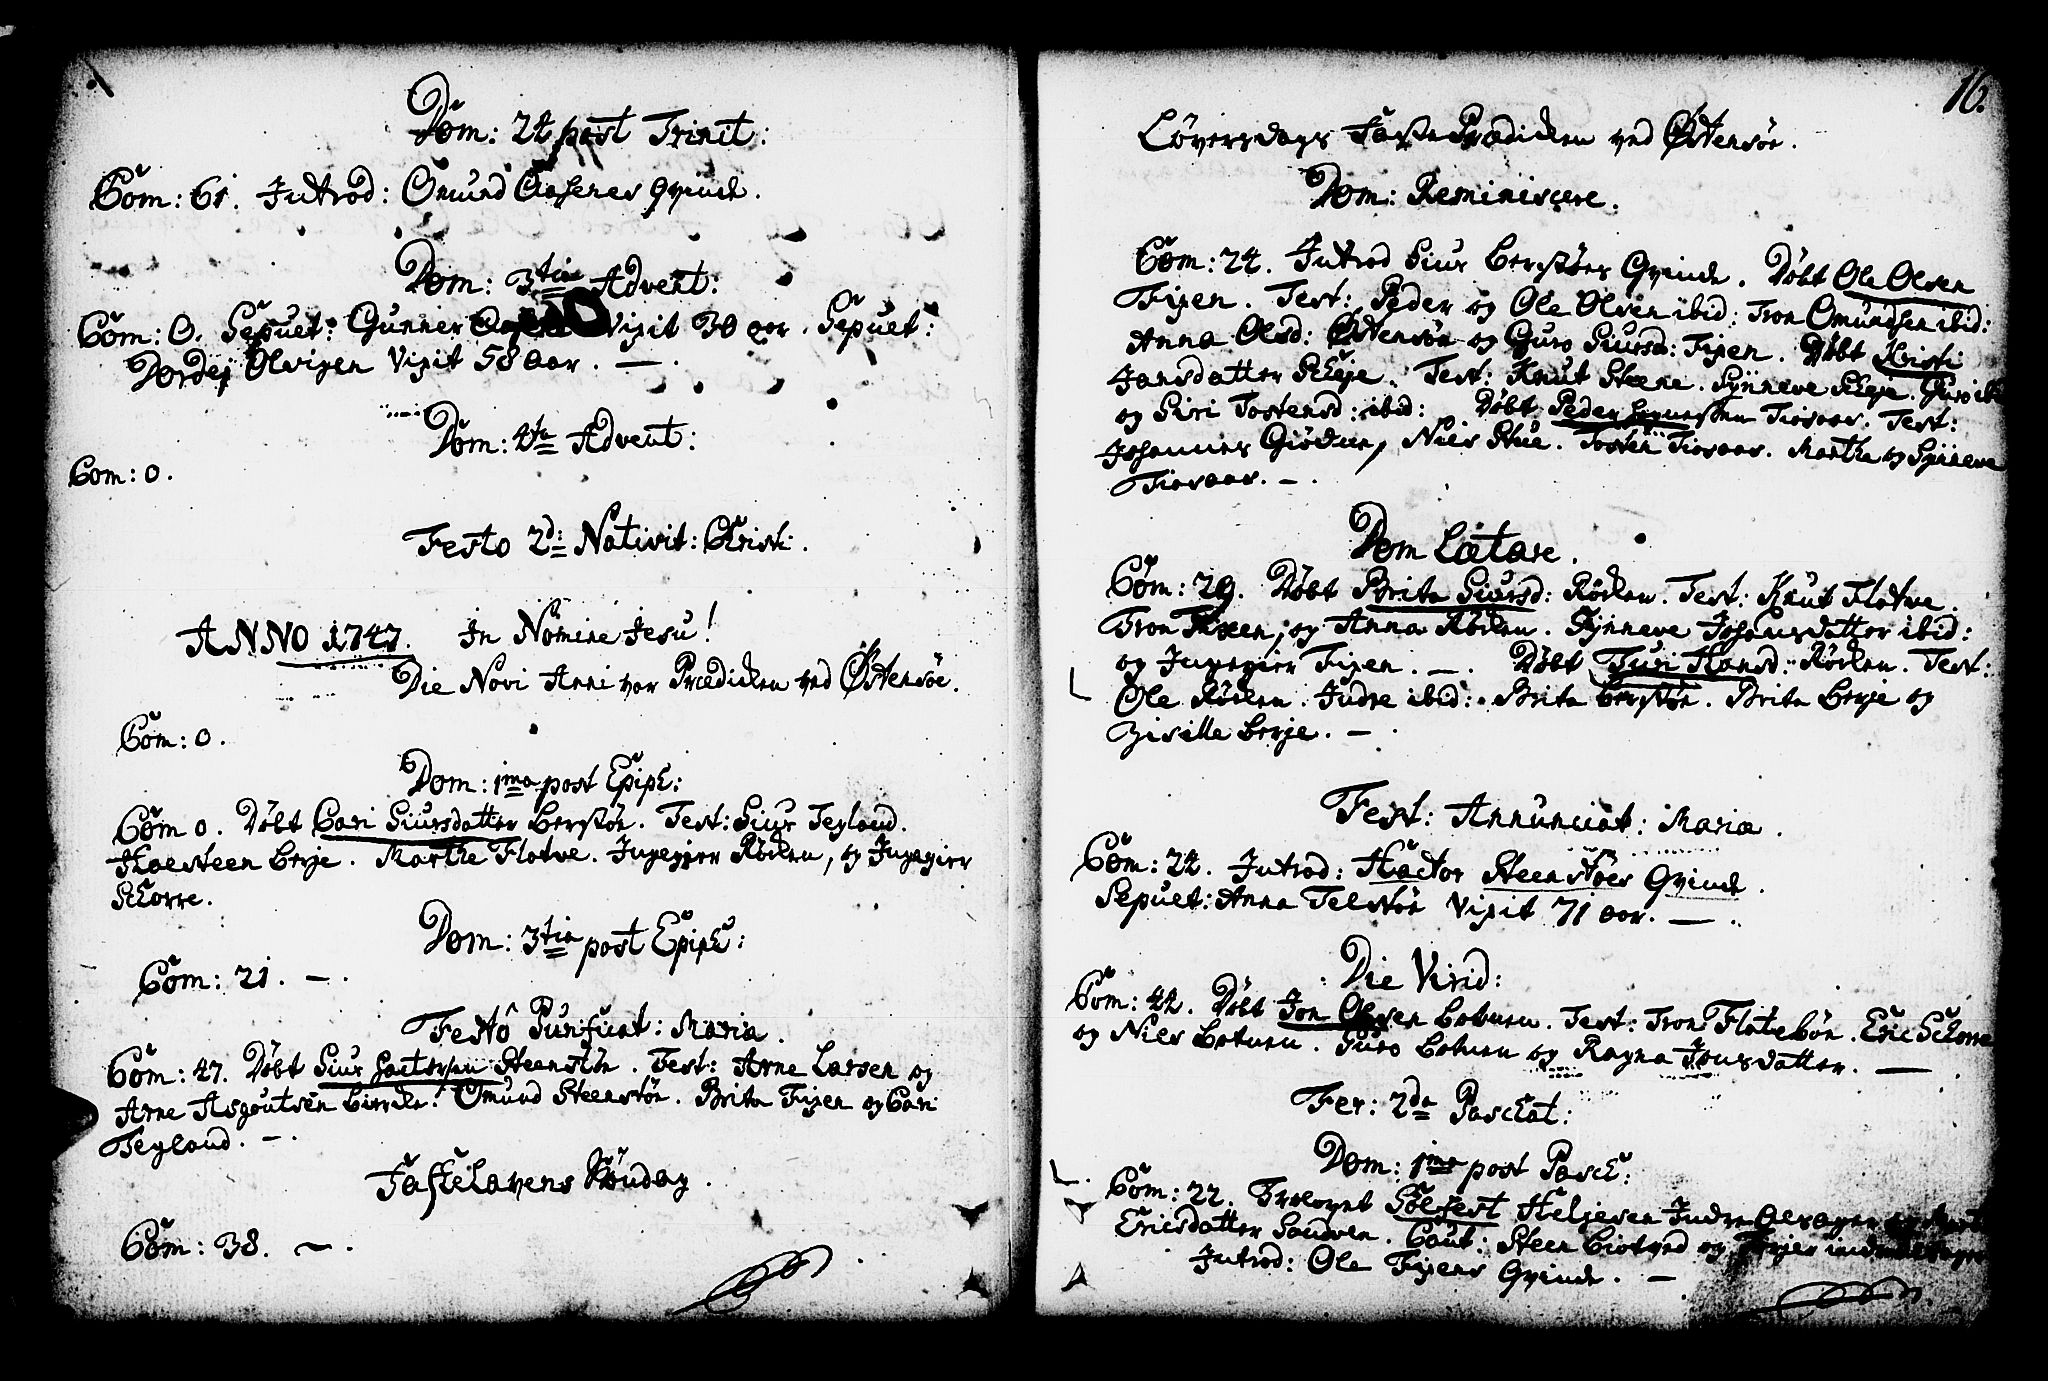 Dom: 24 post Trinit:
Com: 61. Introd: Omund Aasenes Qvinde.
Dom: 3tia Advent:
Com: 0. Sepult: Gunner vixit 30 aar. Sepult:
Dordej Olvigen vixit 58 aar. —.
Dom: 4ta Advent:
Com: 0.
Festo 2d: Nativit: Christi.
ANNO 1747. In Nomine Jesu!
Die Novi Anni var Prædicken ved Østensöe.
Com: 0.
Dom: 1ma post Epiph:
Com 0. Döbt Cari Siursdatter Berstön. Test: Siur Tegland.
Skaesteen Berje. Marthe Flotve. Ingegjer Röcken, og Ingegier
Schorre.
Dom: 3tia post Epiph:
Com: 21. —.
Festo Purificat: Mariæ.
Com: 47. Döbt Siur Hactorsen Steenstön. Test: Arne Larsen og
Arne Asgoutsen Birrcke. Omund Steenstön. Brita Fixen og Cari
Tegland. —.
Fastelavens Söndag.
Com: 38. —.
16.
Löverdags Faste Prædicken ved Östensöe.
Dom: Reminiscere.
Com: 24. Introd Siur Berstöes Qvinde. Döbt Ole Olsen
Fixen. Test: Peder og Ole Olsen ibid: Tron Omundsen ibid:
Anna Olsd: Östensön og Guro Siursd: Fixen. Döbt Kristi
Jansdatter Scheje. Test: Knut Steene. Synneve Scheje. Guro ibid
og Siri Tostensd: ibid: Döbt Peder Tiosaas. Test:
Johannes Giöduen, Niels Stue. Tosten Tiosaas. Marthe og Synneve
Tiosaas. —.
Dom Lætare.
Com: 29. Döbt Brita Siursd: Röcken. Test: Knut Flotve.
Tron Fixen, og Anna Röcken. Synneve Johansdatter ibid:
og Ingegier Fixen. —. Döbt Turi Hansd: Röcken. Test:
Ole Röcken. Indre ibid: Brita Berstön. Brita Berje og
Ziselle Berje. —.
Fest: Annunciat: Mariæ.
Com: 22. Introd: Hactor Steenstöes Qvinde.
Sepult: Anna Telstön vixit 71 aar. —.
Die Virid:
Com: 42. Döbt Jon Olsen Botnen. Test: Tron Flotebön. Eric Schorre
og Niels Botnen. Guro Botnen og Ragna Jonsdatter. —
Fer: 2da Paschat:
Dom: 1ma post Pasch:
Com: 22. Trolovet Sölfest Heljesen Indre Aalsager og
Ericsdatter Sandven. Caut: Steen Biotved og
Introd: Ole Fixens Qvinde. —